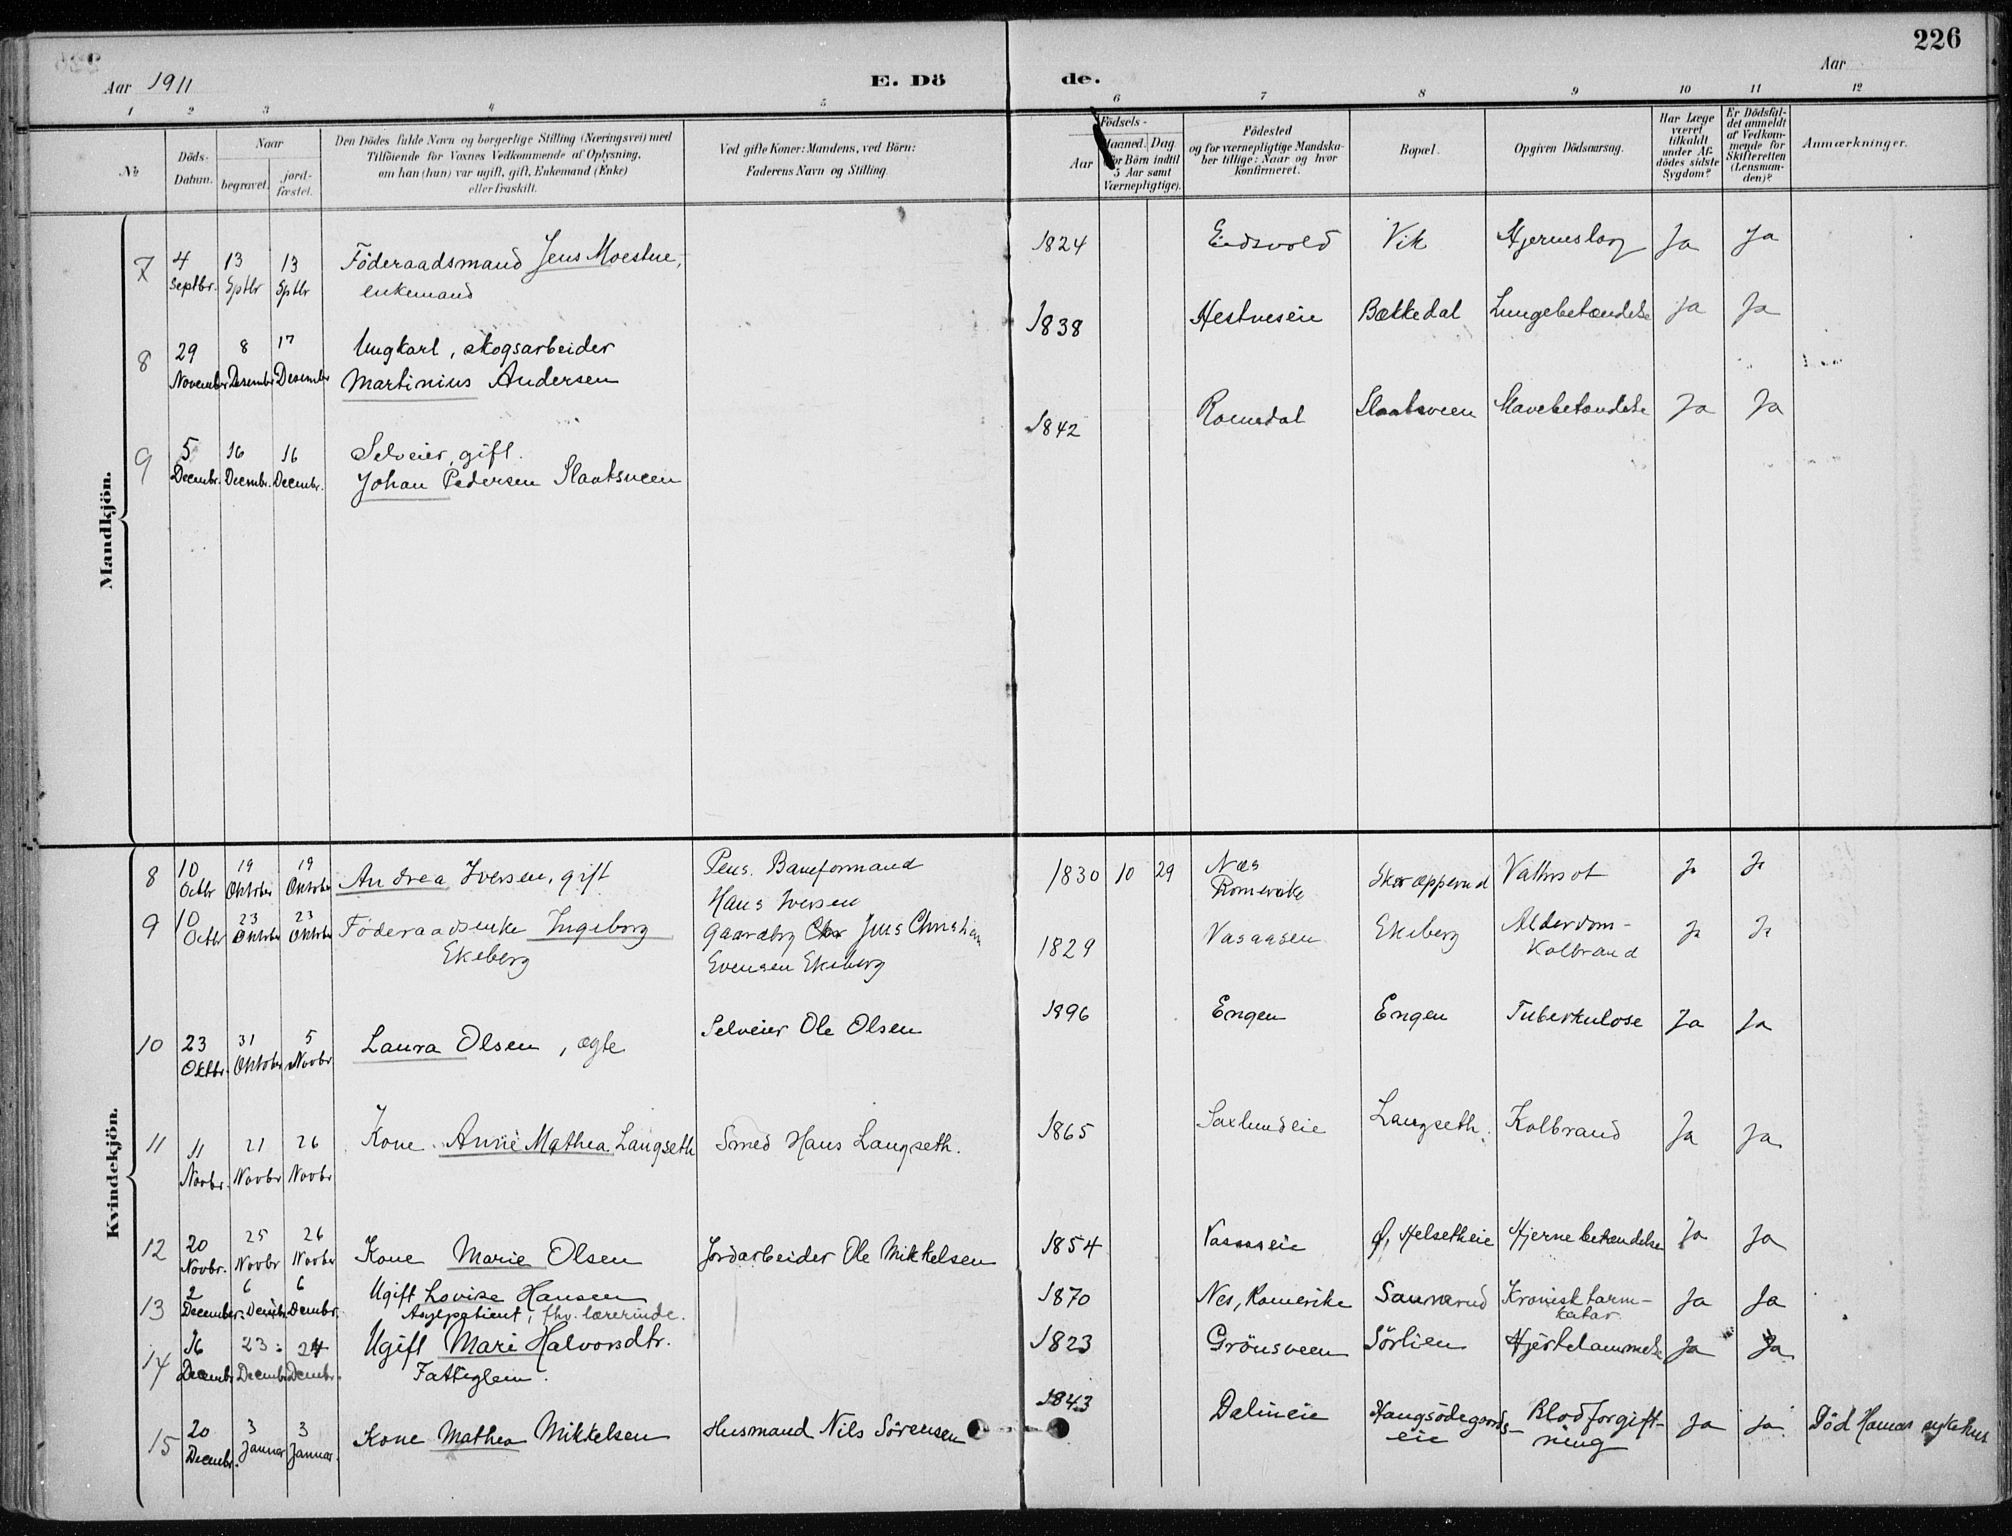 226
Aar 1911
E. Dö de.
Aar
1 2 3 4 5 6 7 8 9 10 11 12
№
Döds-Datum.
Naar
begravet.
jord-fæstet.
Den Dödes fulde Navn og borgerlige Stilling (Næringsvei) med
Tilföiende for Voxnes Vedkommende af Oplysning,
om han (hun) var ugift, gift, Enkemand (Enke)
eller fraskilt.
Ved gifte Koner: Mandens, ved Börn:
Faderens Navn og Stilling.
Födsels-
Aar
Maaned. Dag
for Börn indtil
5 Aar samt
Værnepligtige).
Födested
og for værnepligtige Mandska-
ber tillige: Naar og hvor
konfirmeret.
Bopæl.
Opgiven Dödsaarsag.
Har Læge
været
tilkaldt
under Af-
dödes sidste
Sygdom?
Er Dödsfal-
det anmeldt
af Vedkom-
mende for
Skifteretten
(Lensman-
den)?
Anmærkninger.
Mandkjön.
7 4 Septbr. 13 Sptbr 13 Sptbr Föderaadsmand Jens Moestue, enkemand 1824 Eidsvold Vik Hjerneslag Ja Ja
8 29 November 8 Desember 17 Desember Ungkarl, skogsarbeider Martinius Andersen 1838 Hestneseie Bækkedal Lungebetændelse Ja Ja
9 5 Decembr. 16 Decembr. 16 Decembr. Selveier, gift. Johan Pedersen Slaatsveen 1842 Romedal Slaatsveen Mavebetændelse Ja Ja
Kvindekjön.
8 10 Octbr 19 Oktober 19 Oktober Andrea Iversen, gift Pens. Baneformand Hans Iversen 1830 10 29 Næs Romerike Skræpperud Vattersot Ja Ja
9 10 Octbr 23 Oktober 23 Oktober Föderaadsenke Ingeborg Ekeberg Gaardbrg Jens Christian Evensen Ekeberg 1829 Vasaasen Ekeberg Alderdom- Kolbrand Ja Ja
10 23 Oktbr. 31 Oktober 5 Novbr. Laura Olsen, ægte Selveier Ole Olsen 1896 Engen Engen Tuberkulose Ja Ja
11 11 Novbr. 21 Novbr 26 Novbr Kone Anne Mathea Langseth Smed Hans Langseth. 1865 Saxlundeie Langseth. Kolbrand Ja Ja
12 20 Novbr. 25 Novbr 26 Novbr Kone Marie Olsen Jordarbeider Ole Mikkelsen 1854 Vasaaseie Ø, Helsetheie Hjernebetændelse Ja Ja
13 2 December. 6 Decembr. 6 Decembr. Ugift Lovise Hansen Asylpatient, fhv. lærerinde. 1870 Nes, Romerike Saunerud Kronisk tarm- katar Ja Ja
14 16 Decembr 23 Decembr 24 Decembr. Ugift Mari Halvorsdtr. Fattiglem. 1823 Grönsveen Sörlien Hjertelammelse Ja Ja
15 20 Decembr. 3 Januar 3 Januar. Kone Mathea Mikkelsen Husmand Nils Sörensen 1843 Dalineie Haugsödegaards- eie Blodforgift- ning Ja Ja Död Hamar sykehus